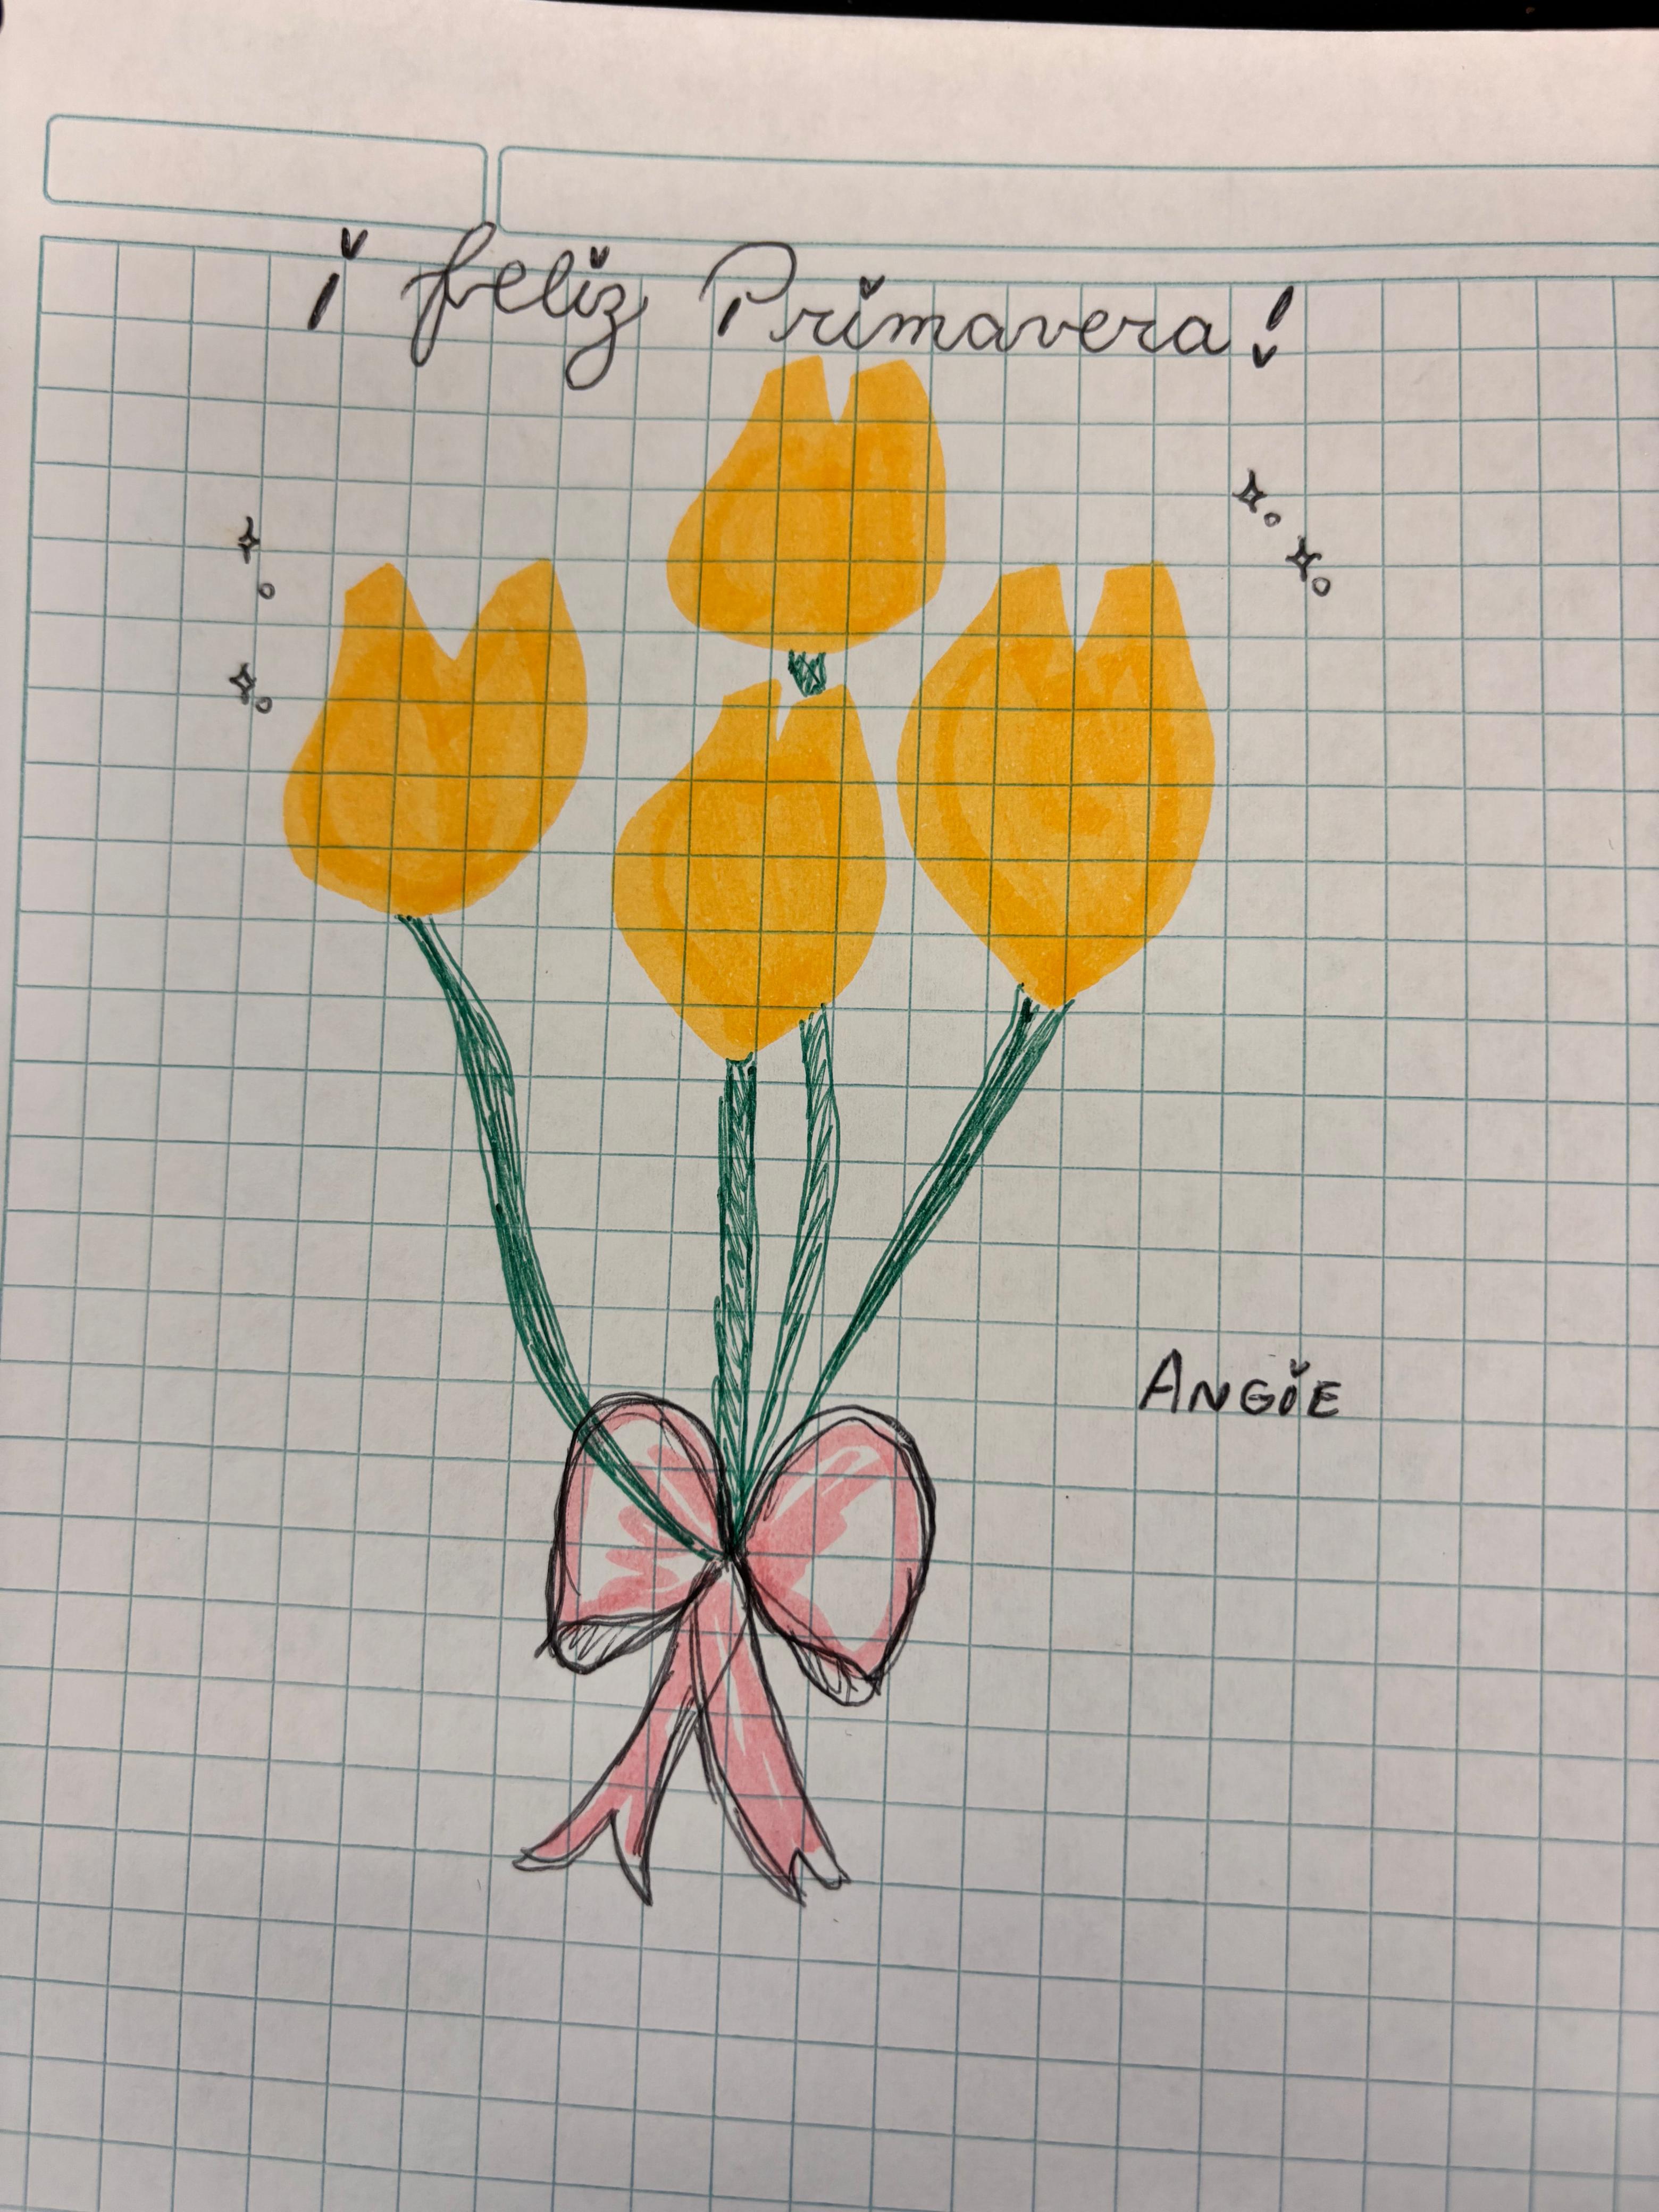 ¡feliz Primavera!
ANGiE